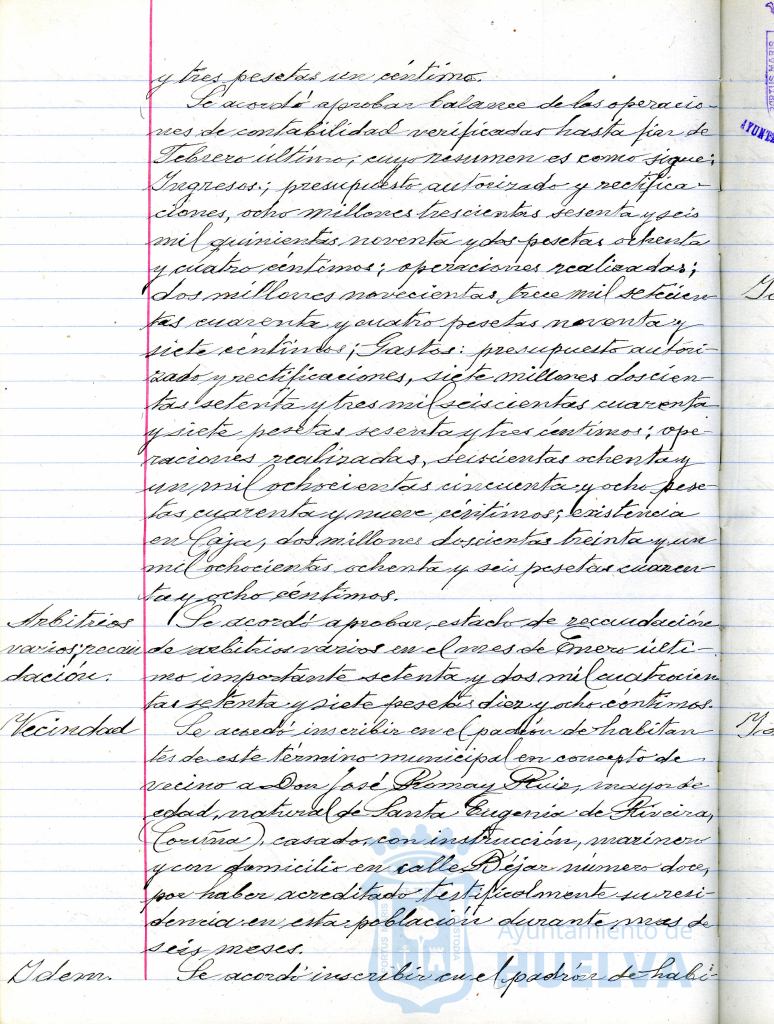 y tres pesetas un céntimo.
Se acordó aprobar balance de las operacio-
nes de contabilidad verificadas hasta fin de
Febrero último, cuyo resumen es como sigue:
Ingresos.; presupuesto autorizado y rectifica-
ciones, ocho millones trescientas sesenta y seis
mil quinientas noventa y dos pesetas ochenta
y cuatro céntimos; operaciones realizadas;
dos millones novecientas trece mil setecien
tas cuarenta y cuatro pesetas noventa y
siete céntimos; Gastos: presupuesto autori-
zado y rectificaciones, siete millones doscien-
tas setenta y tres mil seiscientas cuarenta
y siete pesetas sesenta y tres céntimos; ope-
raciones realizadas, seiscientas ochenta y
un mil ochocientas cincuenta y ocho pese-
tas cuarenta y nueve céntimos; existencia
en Caja, dos millones doscientas treinta y un
mil ochocientas ochenta y seis pesetas cuaren-
ta y ocho céntimos.
Arbitrios
varios; recau
dación.
Se acordó aprobar estado de recaudación
de arbitrios varios en el mes de Enero últi-
mo importante setenta y dos mil cuatrocien
tas setenta y siete pesetas diez y ocho céntimos.
Vecindad
Se acordó inscribir en el padrón de habitan
tes de este término municipal en concepto de
vecino a Don José Romay Ruiz, mayor de
edad, natural de Santa Eugenia de Riveira,
(Coruña), casado, con instrucción, marinero
y con domicilio en calle Béjar número doce,
por haber acreditado testificalmente su resi-
dencia en esta población durante mas de
seis meses.
Idem.
Se acordó inscribir en el padrón de habi-
Ayuntamiento de
HUELVA